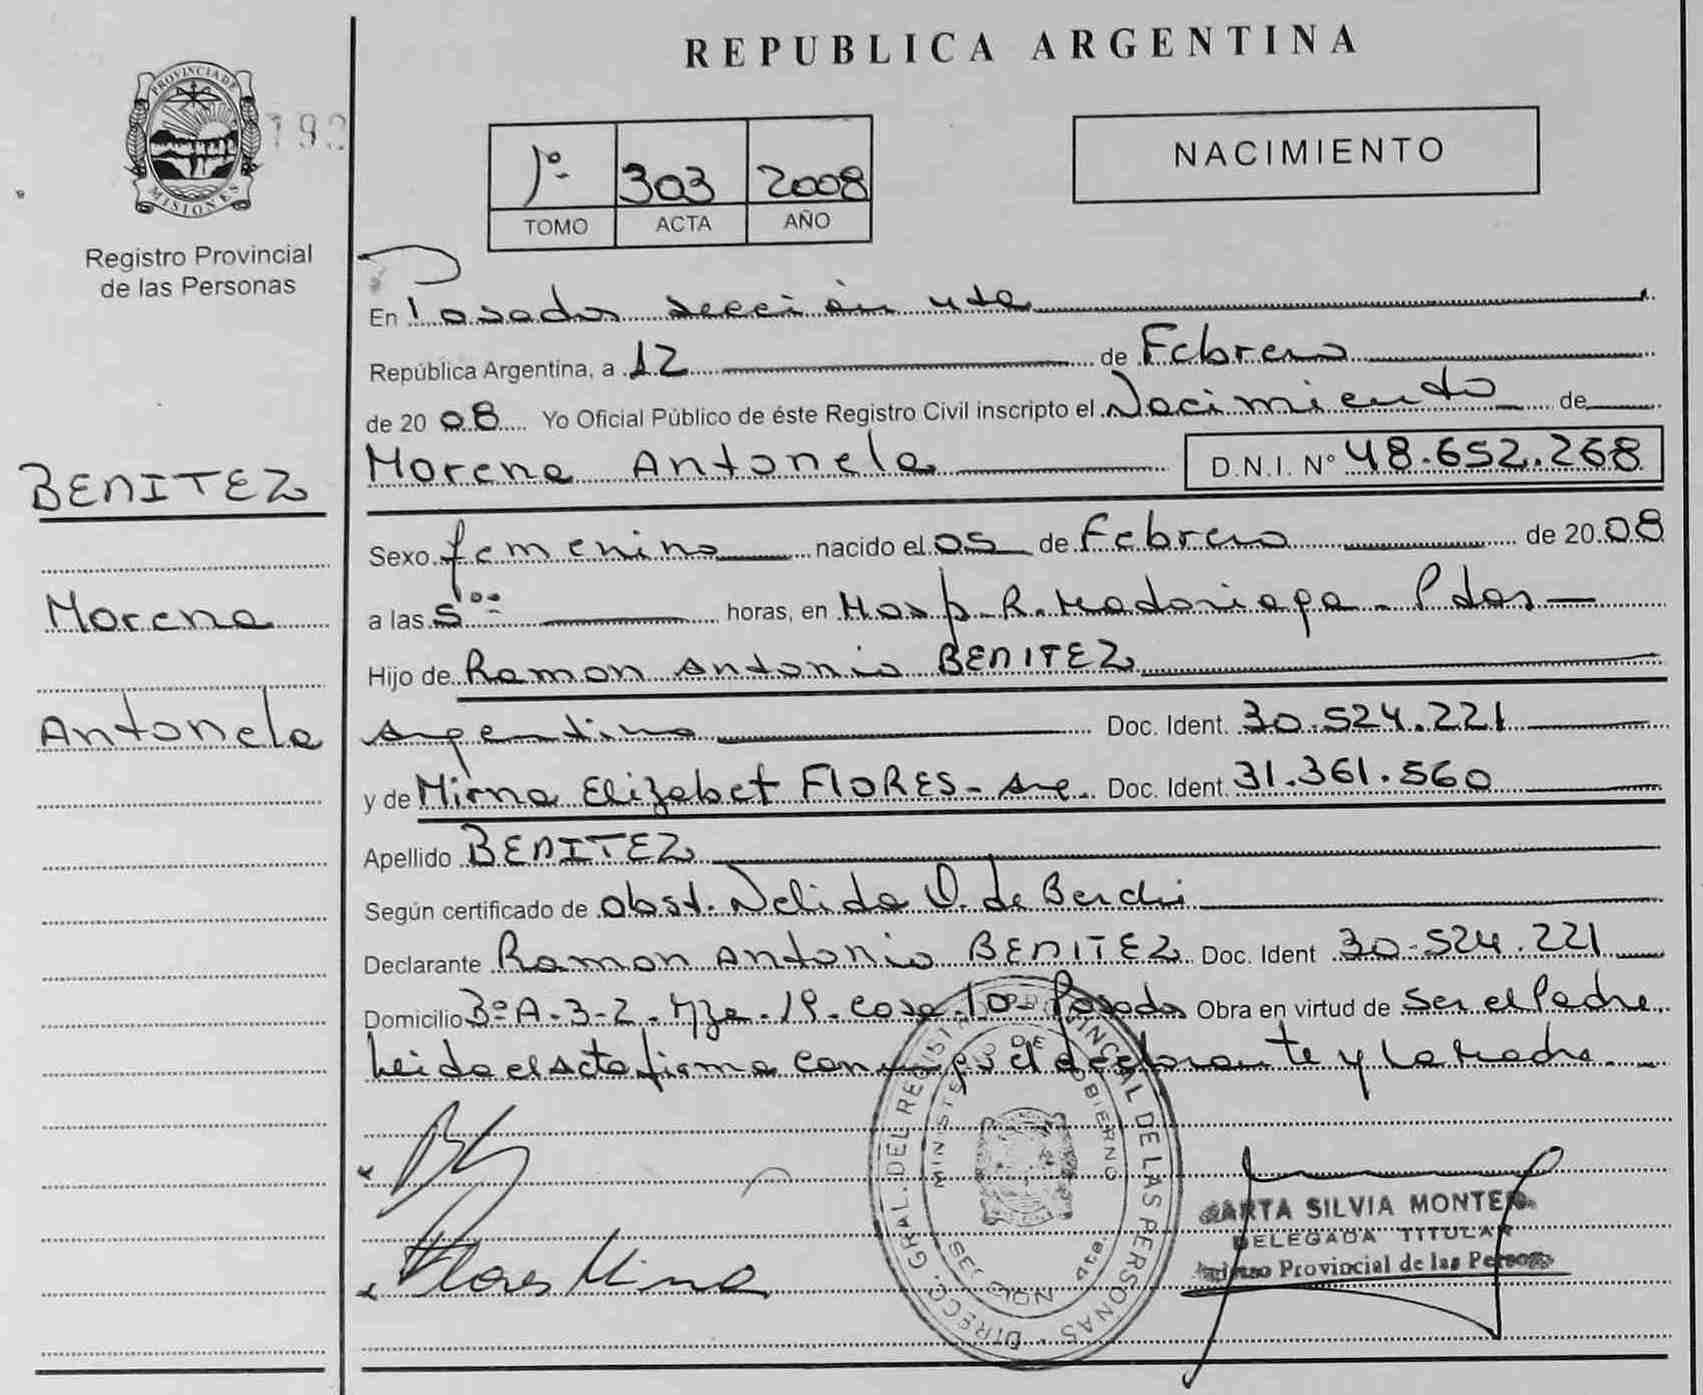 REPUBLICA ARGENTINA
PROVINCIA DE
MISIONES
192
Registro Provincial
de las Personas
1º- 303 2008
TOMO ACTA AÑO
NACIMIENTO
En Posadas sección 4ta
República Argentina, a 12 de Febrero
de 2008 Yo Oficial Público de éste Registro Civil inscripto el Nacimiento de
Morena Antonela D.N.I. Nº 48.652.268
BENITEZ
Morena
Antonela
Sexo femenino nacido el 05 de Febrero de 2008
a las 5⁰⁰ horas, en Hosp. R. Madariaga - Pdas -
Hijo de Ramon Antonio BENITEZ
Argentino Doc. Ident. 30.524.221
y de Mirna Elizabet FLORES - Doc. Ident. 31.361.560
Apellido BENITEZ
Según certificado de obst. Nelida O. de Berchi
Declarante Ramon Antonio BENITEZ Doc. Ident 30.524.221
Domicilio Bº A-3-2 - Mza - 19 - Casa - 10 - Posadas Obra en virtud de Ser el Padre.
Leida el acta firma conmigo el declarante y La Madre.
Flores Mirna
DIRECC. GRAL. DEL REGISTRO PROVINCIAL DE LAS PERSONAS
MINISTERIO DE GOBIERNO
SECCION 4ta.
MARTA SILVIA MONTE
DELEGADA TITULAR
Provincial de las Personas